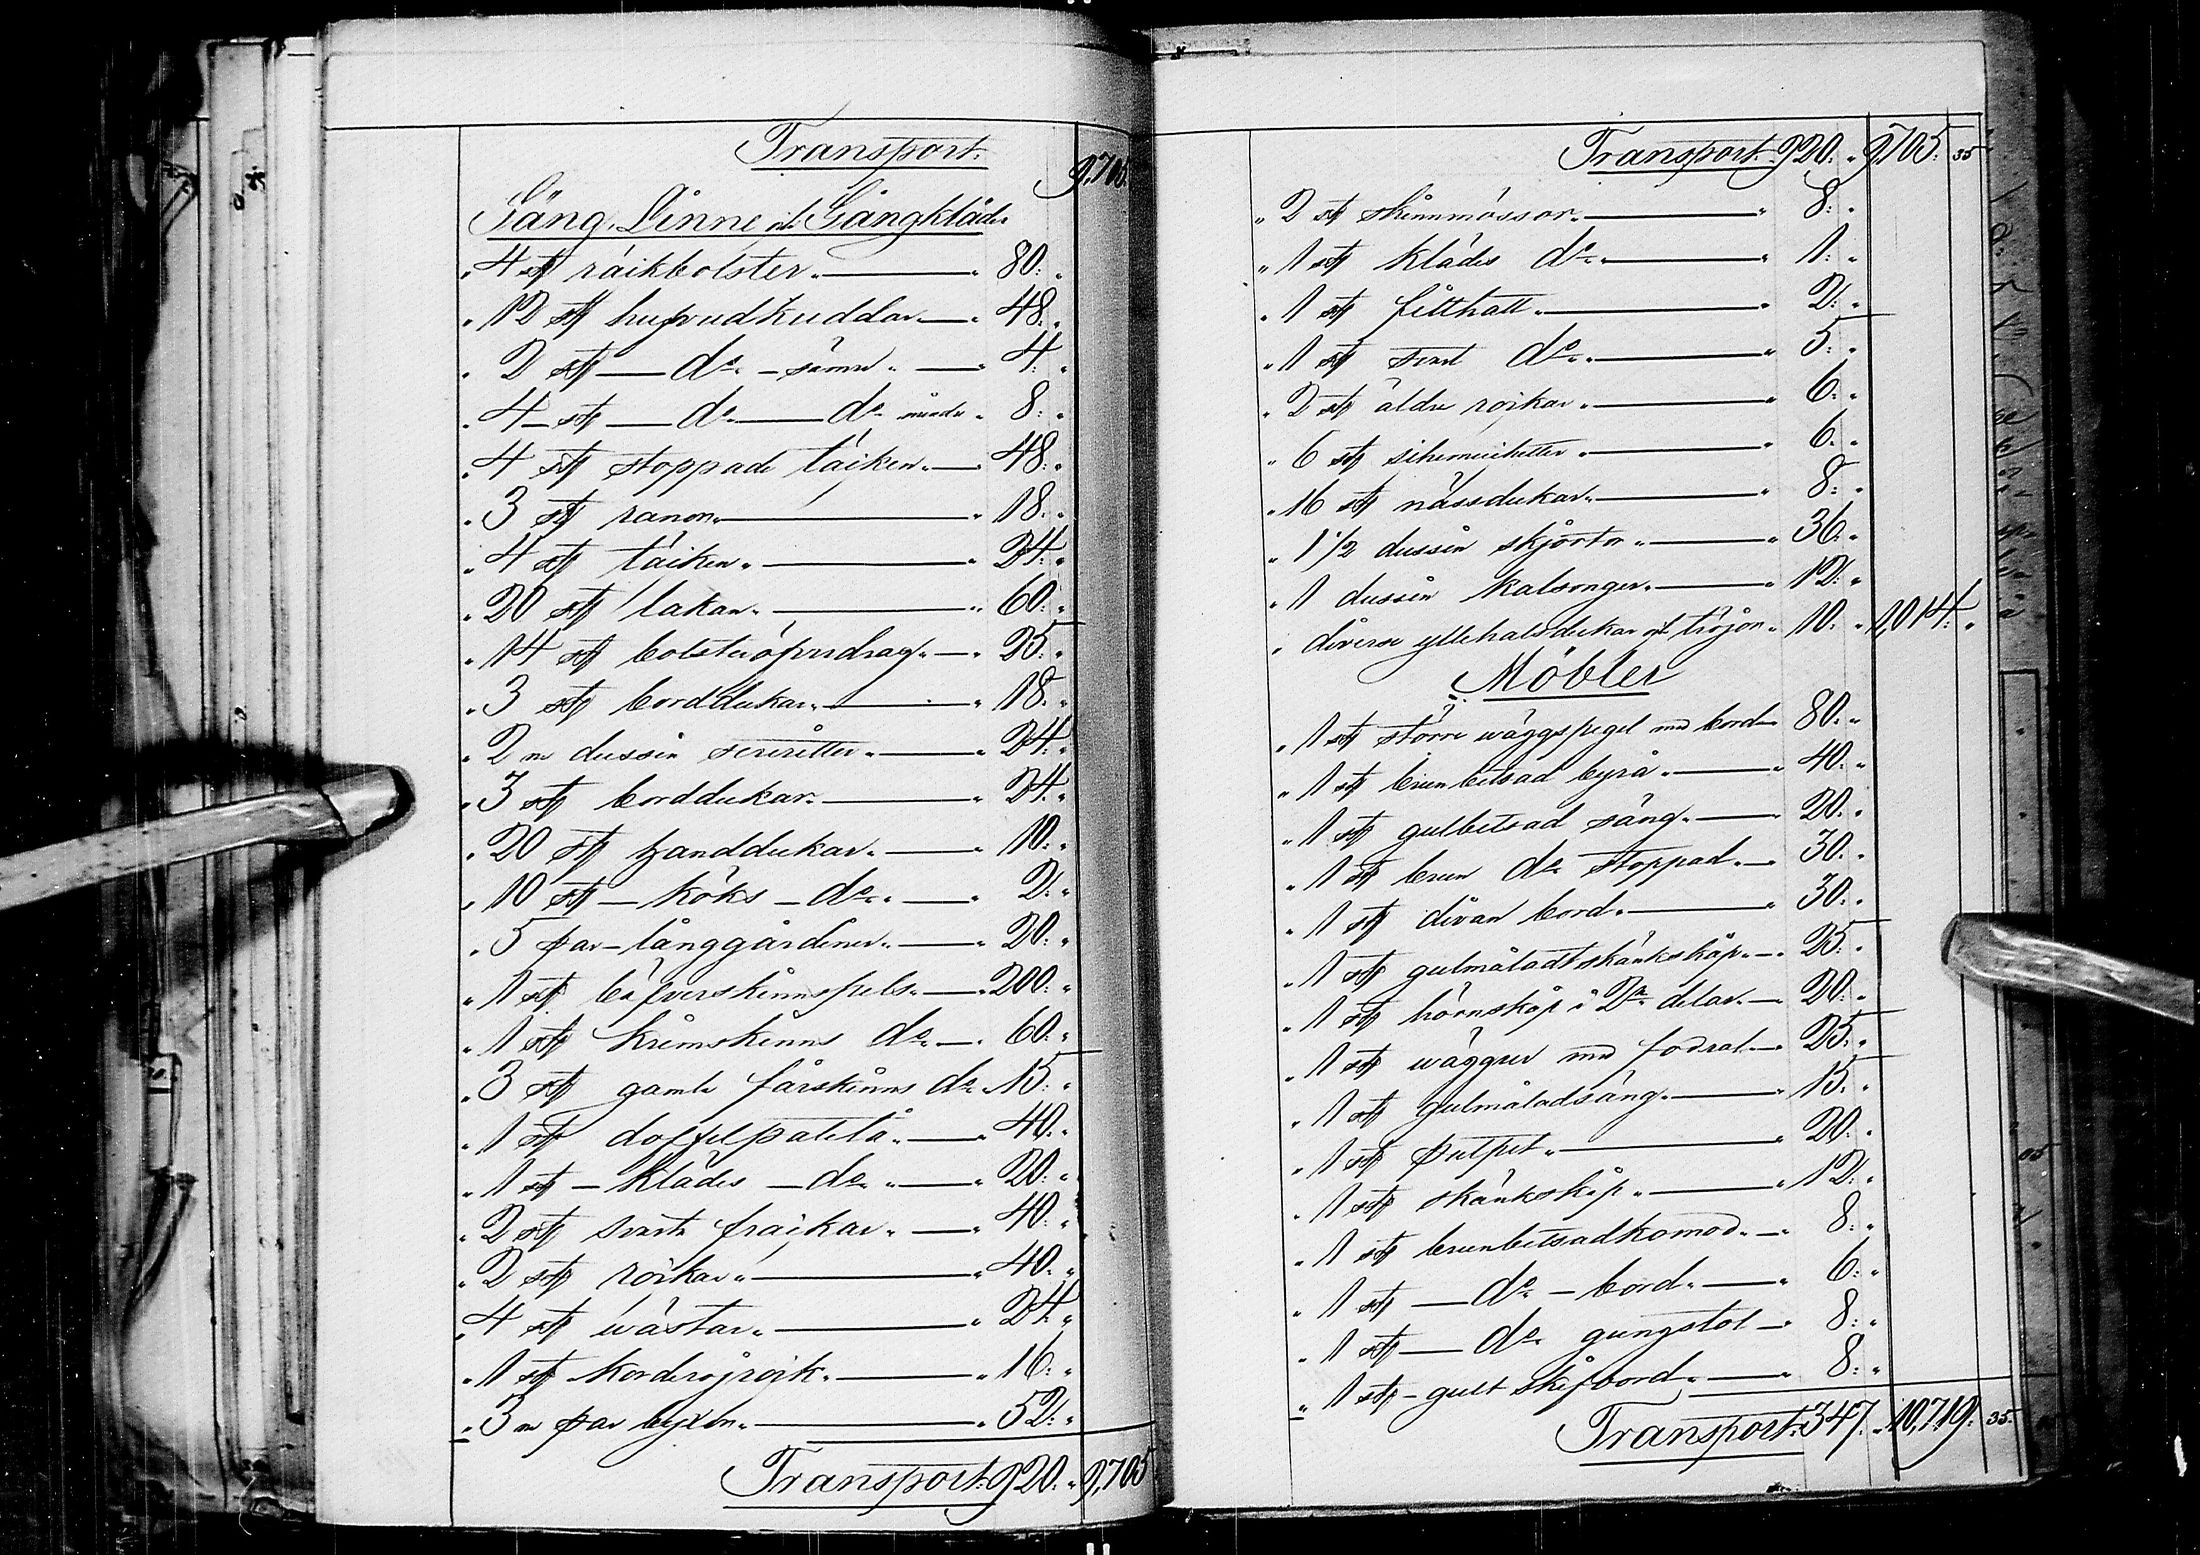 Transport. 9,705
Säng, Linne och Gångkläder
" 4 st räikbolster. — " 80: "
" 12 st hufvudkuddar — " 48: "
" 2 st — do — sämre " — " 4: "
" 4 — st — do — do mindre " 8: "
" 4 st stoppade täiken. — " 48: "
" 3 st ranor. — " 18: "
" 4 st täiken. — " 24: "
" 20 st lakan. — " 60: "
" 14 st bolsteröfverdrag. — " 25: "
" 3 st borddukar. — " 18: "
" 2 ne dussin servetter. — " 24: "
" 3 st borddukar. — " 24: "
" 20 st handdukar. — " 10: "
" 10 st — köks — do. — " 2: "
" 5 par — långgardiner. — " 20: "
" 1 st bäfverskinnspels. — " 200: "
" 1 st krimskinns do. — " 60: "
" 3 st gamla fårskinns do " 15: "
" 1 st doffelpaletå. — " 40: "
" 1 st — klädes — do. " — " 20: "
" 2 st svarta fraickar. — " 40: "
" 2 st röckar. — " 40: "
" 4 st wästar. — " 24: "
" 1 st korderojröck. — " 16: "
" 3 ne par byxor. — " 52: "
Transport. 920: " 9,705
Transport. 920: " 9,705: 35
" 2 st skinnmössor. — " 8: "
" 1 st klädes do. — " 1: "
" 1 st filthatt. — " 2: "
" 1 st svart do. — " 5: "
" 2 st äldre röckar. — " 6: "
" 6 st sihemichetter. — " 6: "
" 16 st näsdukar. — " 8: "
" 1 1/2 dussin skjortor. — " 36: "
" 1 dussin kalsonger. — " 12: "
" diverse yllehalsdukar och tröjor. " 10: " 1,014: "
Möbler
" 1 st större wäggspegel med bord — 80: "
" 1 st brunbetsad byrå. — " 40: "
" 1 st gulbetsad säng. — " 20: "
" 1 st brun do stoppad. — " 30: "
" 1 st divan bord. — " 30: "
" 1 st gulmåladt skänkskåp. — " 25: "
" 1 st hörnskåp i 2ne delar. — " 20: "
" 1 st wäggur med fodral. — " 25: "
" 1 st gulmåladsäng. — " 15: "
" 1 st pulpet. — " 20: "
" 1 st skänkskåp. — " 12: "
" 1 st brunbetsadkomod. — " 8: "
" 1 st — do — bord. — " 6: "
" 1 st — do gungstol — " 8: "
" 1 st — gult skifbord. — " 8: "
Transport. 347: " 10,719: 35.